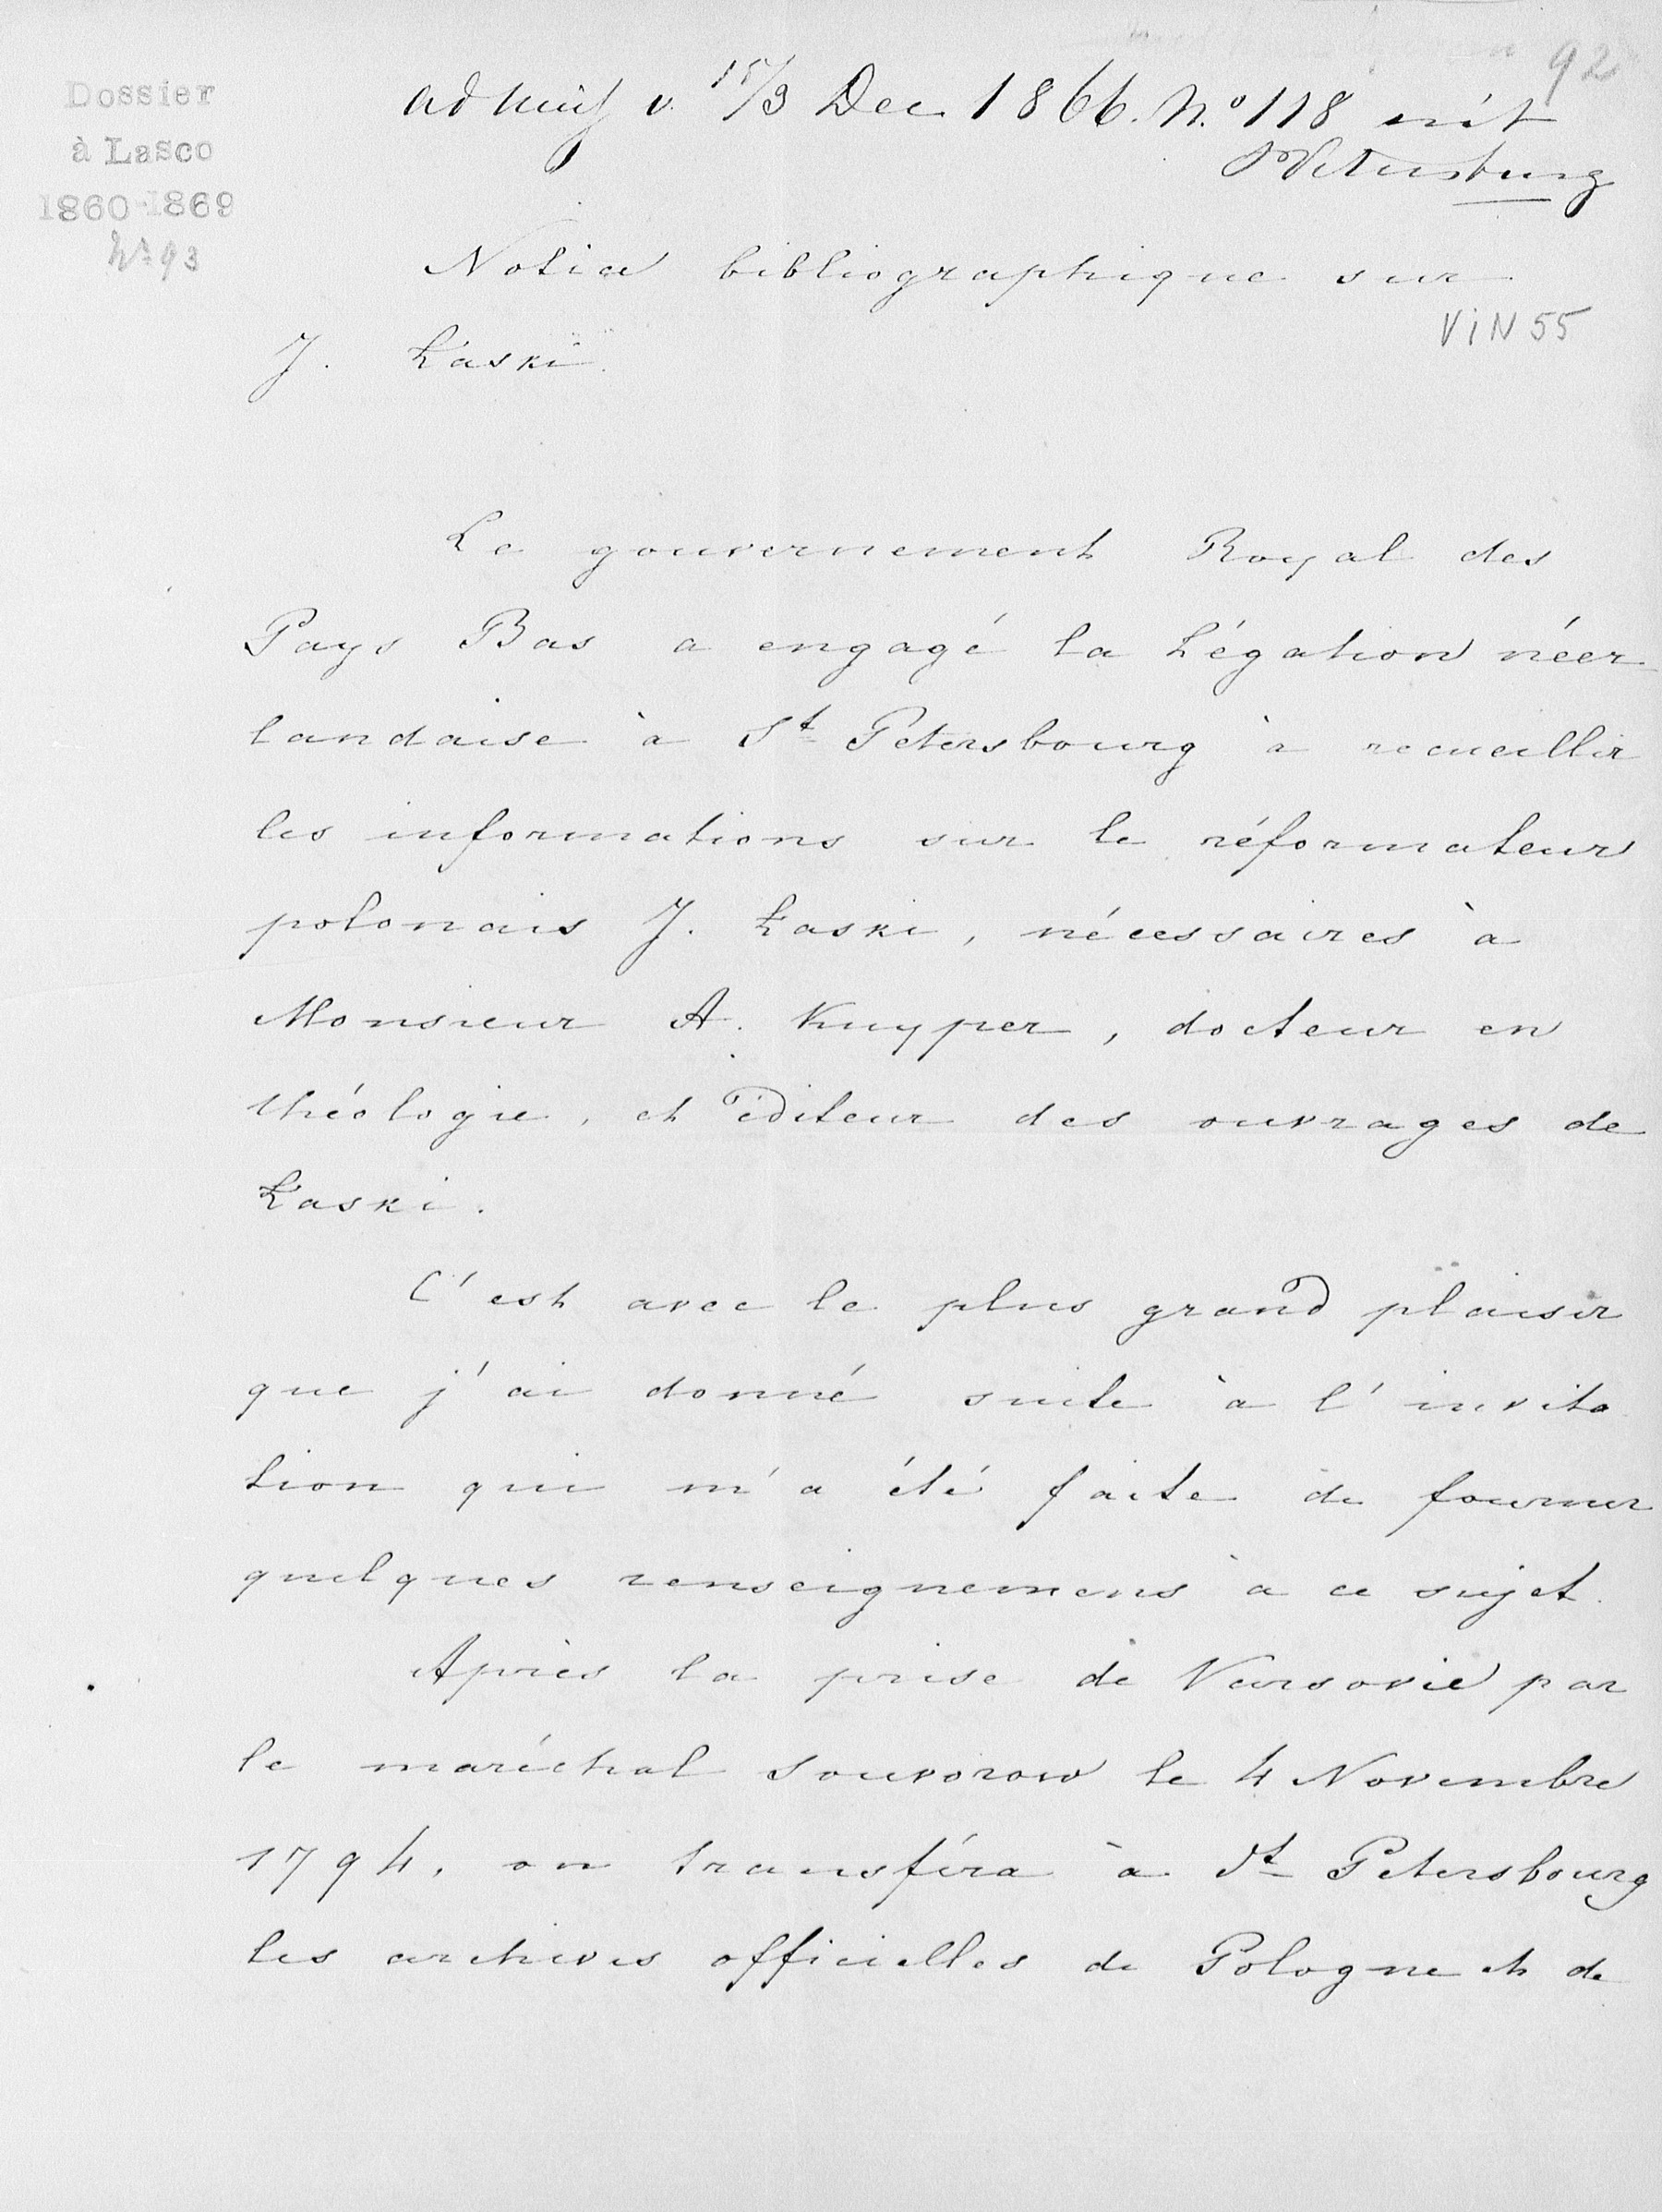 92
Dossier
à Lasco
1860-1869
No 93
v. 15/3 Dec 1866. No 118 uit
St Petersburg
Notice bibliographique sur
J. Łaski.
VIN 55
Le gouvernement Royal des
Pays Bas a engagé la Légation néer
landaise à St Petersbourg à recueillir
les informations sur le réformateur
polonais J. Łaski, nécessaires à
Monsieur A. Kuyper, docteur en
théologie, et éditeur des ouvrages de
Łaski.
C'est avec le plus grand plaisir
que j'ai donné suite à l'invita
tion qui m'a été faite de fournir
quelques renseignemens à ce sujet.
Après la prise de Varsovie par
le maréchal Souvorow le 4 Novembre
1794, on transféra à St Petersbourg
les archives officielles de Pologne et de